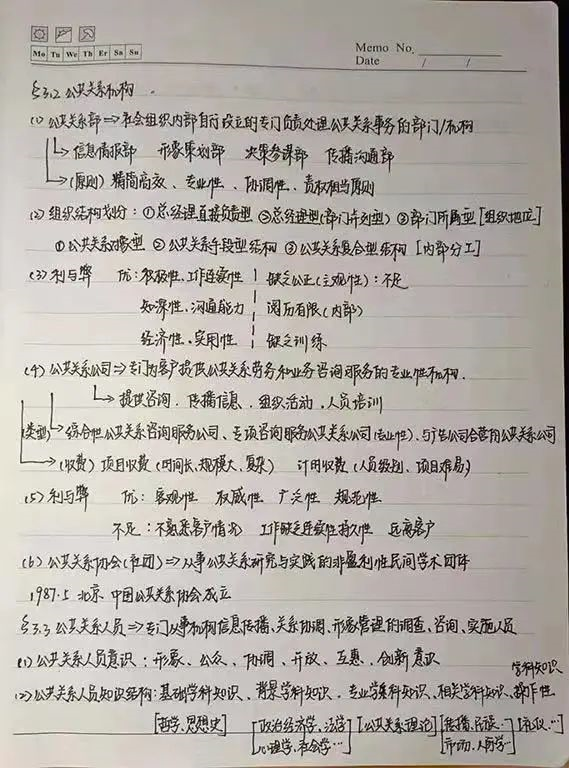 Mo Tu We Th Fr Sa Su
Memo No.
Date / /
§3.2 公共关系机构
(1) 公共关系部⇒社会组织内部自行设立的专门负责处理公共关系事务的部门/机构
↳信息情报部 形象策划部 决策参谋部 传播沟通部
↳(原则) 精简高效、专业性、协调性、责权相当原则
(2) 组织结构划分:①总经理直接负责型 ②总经理型(部门并列型) ③部门所属型 [组织地位]
①公共关系对象型 ②公共关系手段型结构 ③公共关系复合型结构 [内部分工]
(3) 利与弊 优:积极性、工作连续性 缺乏公正(主观性):不足
知深性、沟通能力 阅历有限(内部)
经济性、实用性 缺乏训练
(4) 公共关系公司⇒专门为客户提供公共关系劳务和业务咨询服务的专业性机构.
↳提供咨询、传播信息、组织活动、人员培训
(类型)→综合性公共关系咨询服务公司、专项咨询服务公共关系公司(专业性)、与广告公司合营的公共关系公司
→(收费) 项目收费(时间长、规模大、复杂) 计时收费(人员级别、项目难易)
(5) 利与弊 优:客观性 权威性 广泛性 规范性
不足:不熟悉客户情况 工作缺乏连续性持久性 远离客户
(6) 公共关系协会(社团)⇒从事公共关系研究与实践的非盈利性民间学术团体
1987.5 北京 中国公共关系协会成立
§3.3 公共关系人员⇒专门从事机构信息传播、关系协调、形象管理的调查、咨询、实施人员
(1) 公共关系人员意识:形象、公众、协调、开放、互惠、创新意识
学科知识
(2) 公共关系人员知识结构:基础学科知识、背景学科知识、专业学科知识、相关学科知识、操作性
[哲学、思想史] [政治经济学、法学 [公共关系理论] [传播、民族… [礼仪、…]
心理学、社会学…] 市场、人际学…]